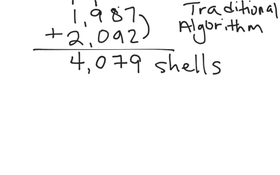 1,987
Traditional
+2,092)
Algorithm
4,079 shells